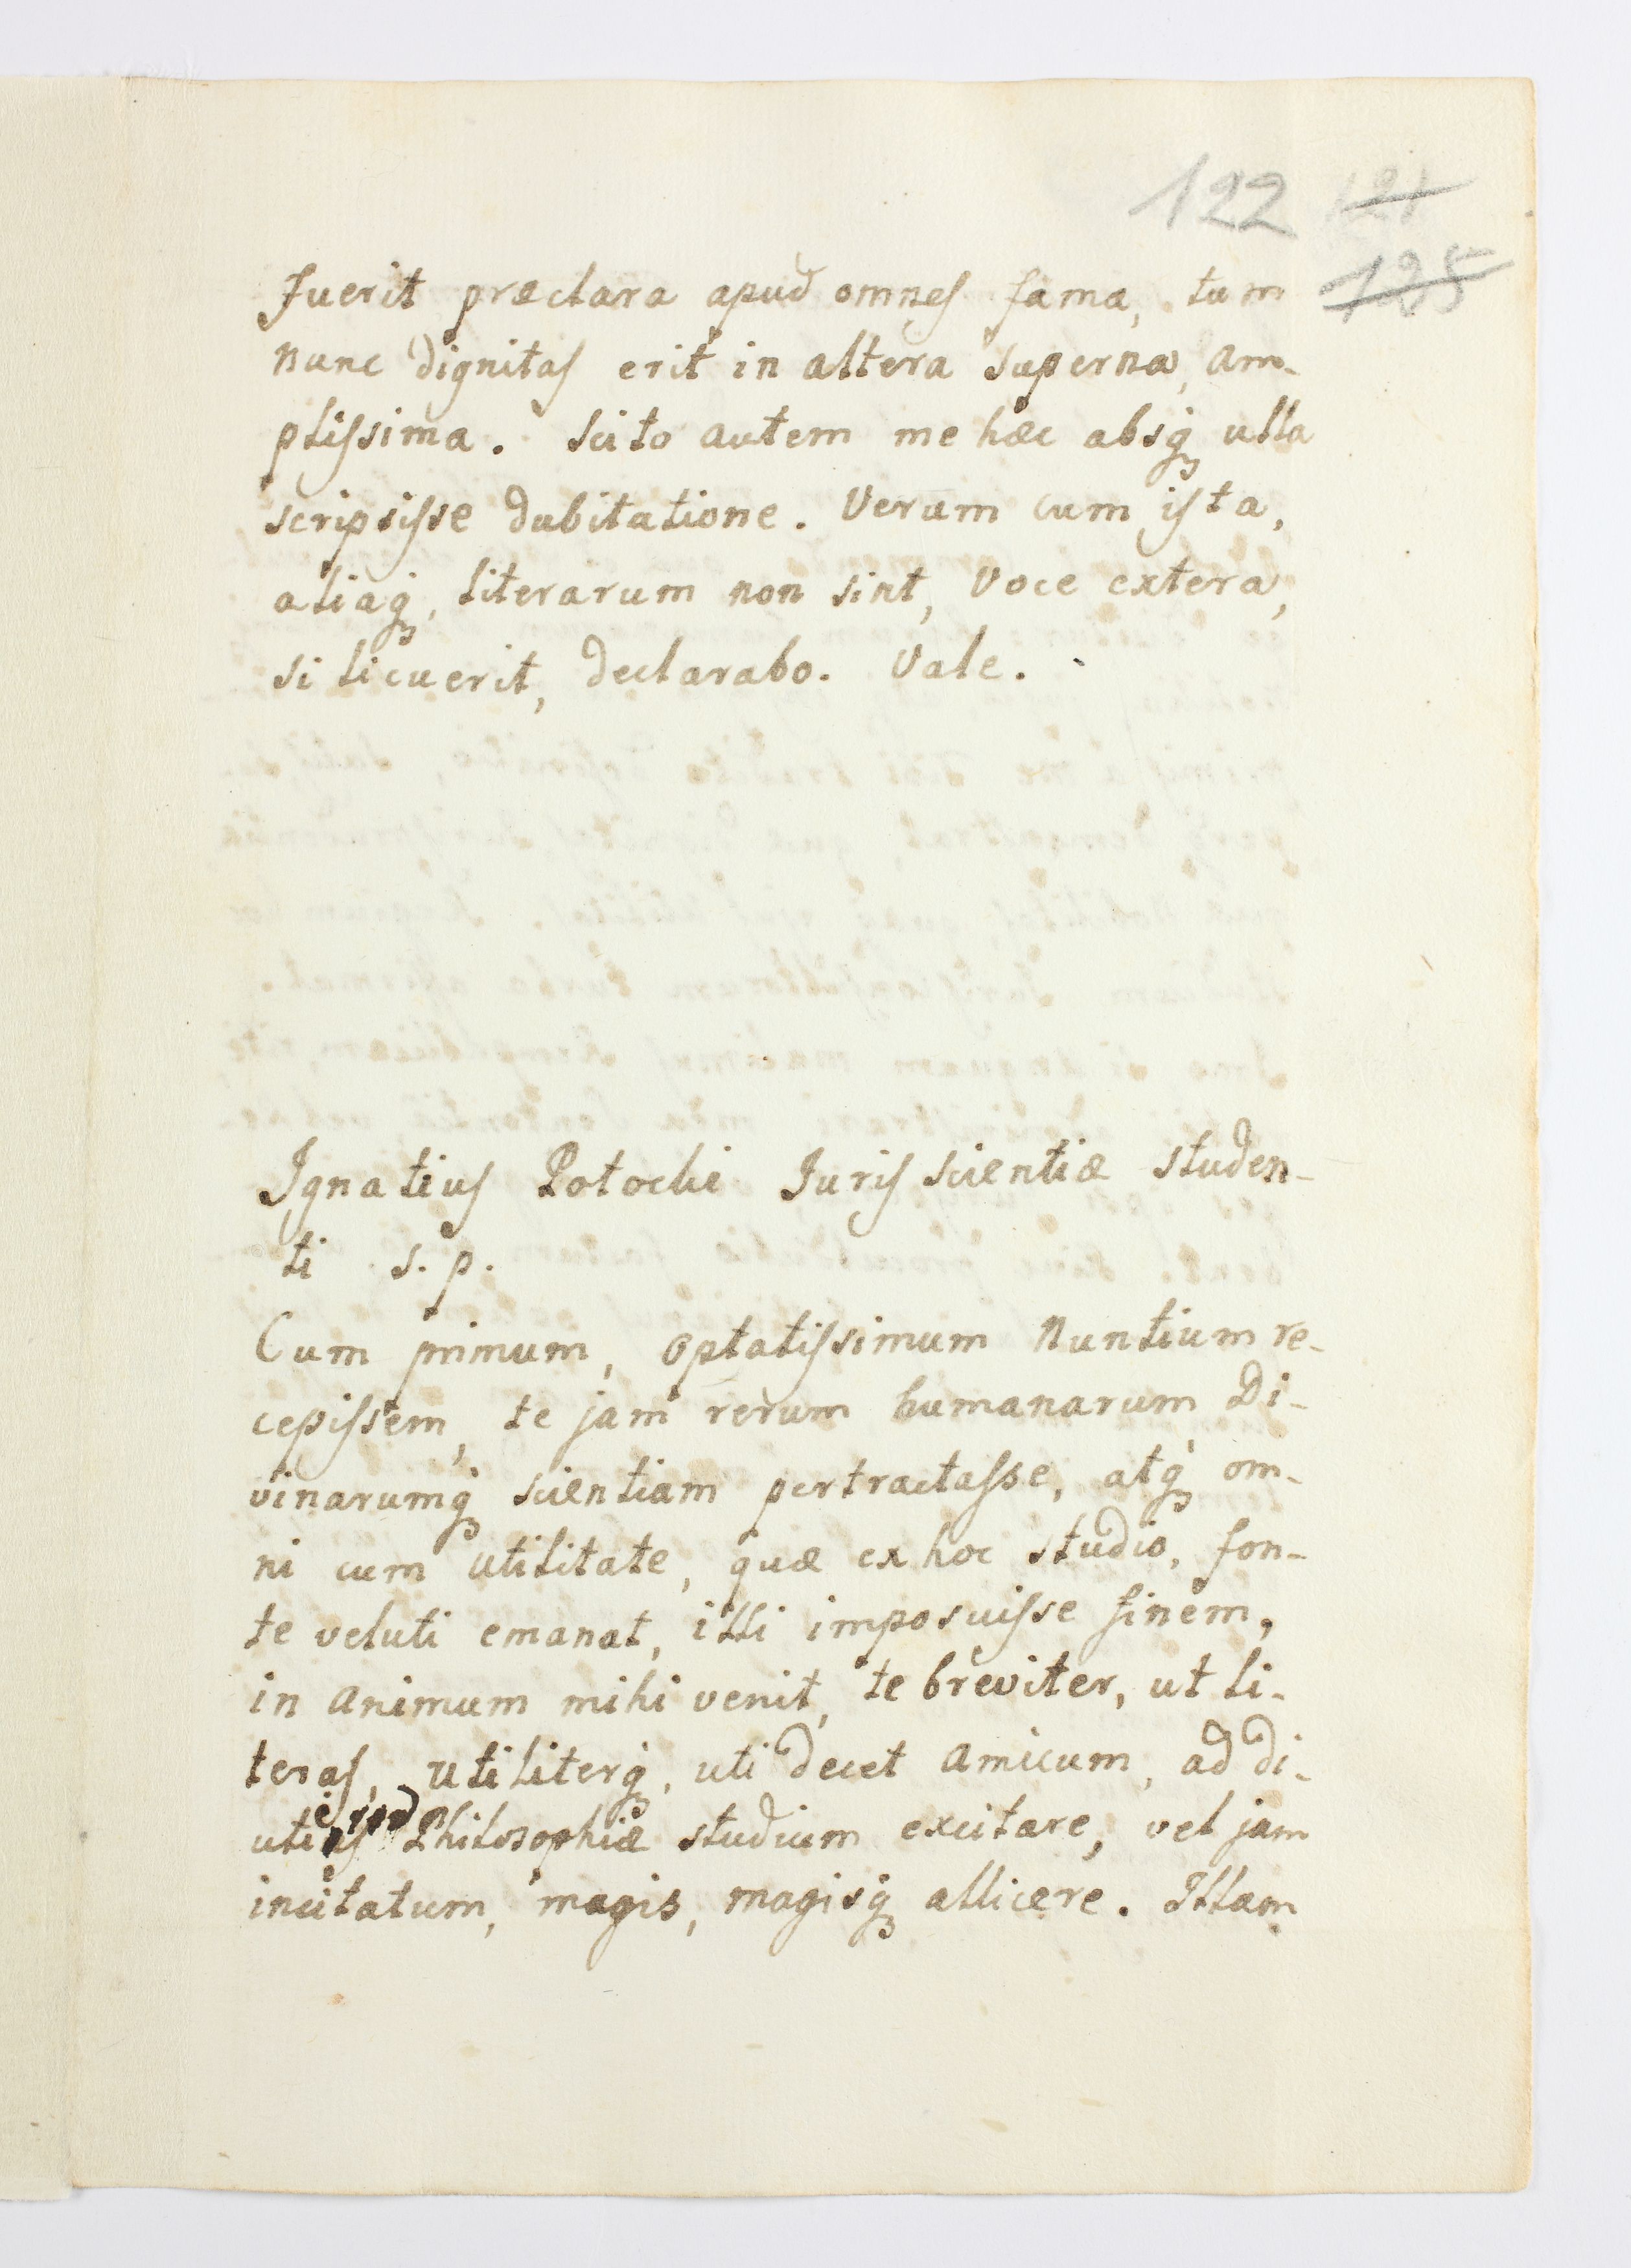 122 121
125
fuerit præclara apud omnes fama, tum
nunc dignitas erit in altera superna, am-
plissima. Scito autem me hæc absq ulla
scripsisse dubitatione. Verum cum ista,
aliaq, literarum non sint, Voce extera,
si licuerit, declarabo. Vale.
Ignatius Potocki Juris scientiæ studen-
ti s. p.
Cum primum, optatissimum Nuntium re-
cepissem, te jam rerum humanarum Di-
vinarumq scientiam pertractasse, atq om-
ni cum utilitate, quæ ex hoc studio, fon-
te veluti emanat, illi imposuisse finem,
in animum mihi venit, te breviter, ut li-
teras, utiliterq, uti decet amicum, ad di-
Philosophiæ studium excitare, vel jam
incitatum, magis, magisq allicere. Illam